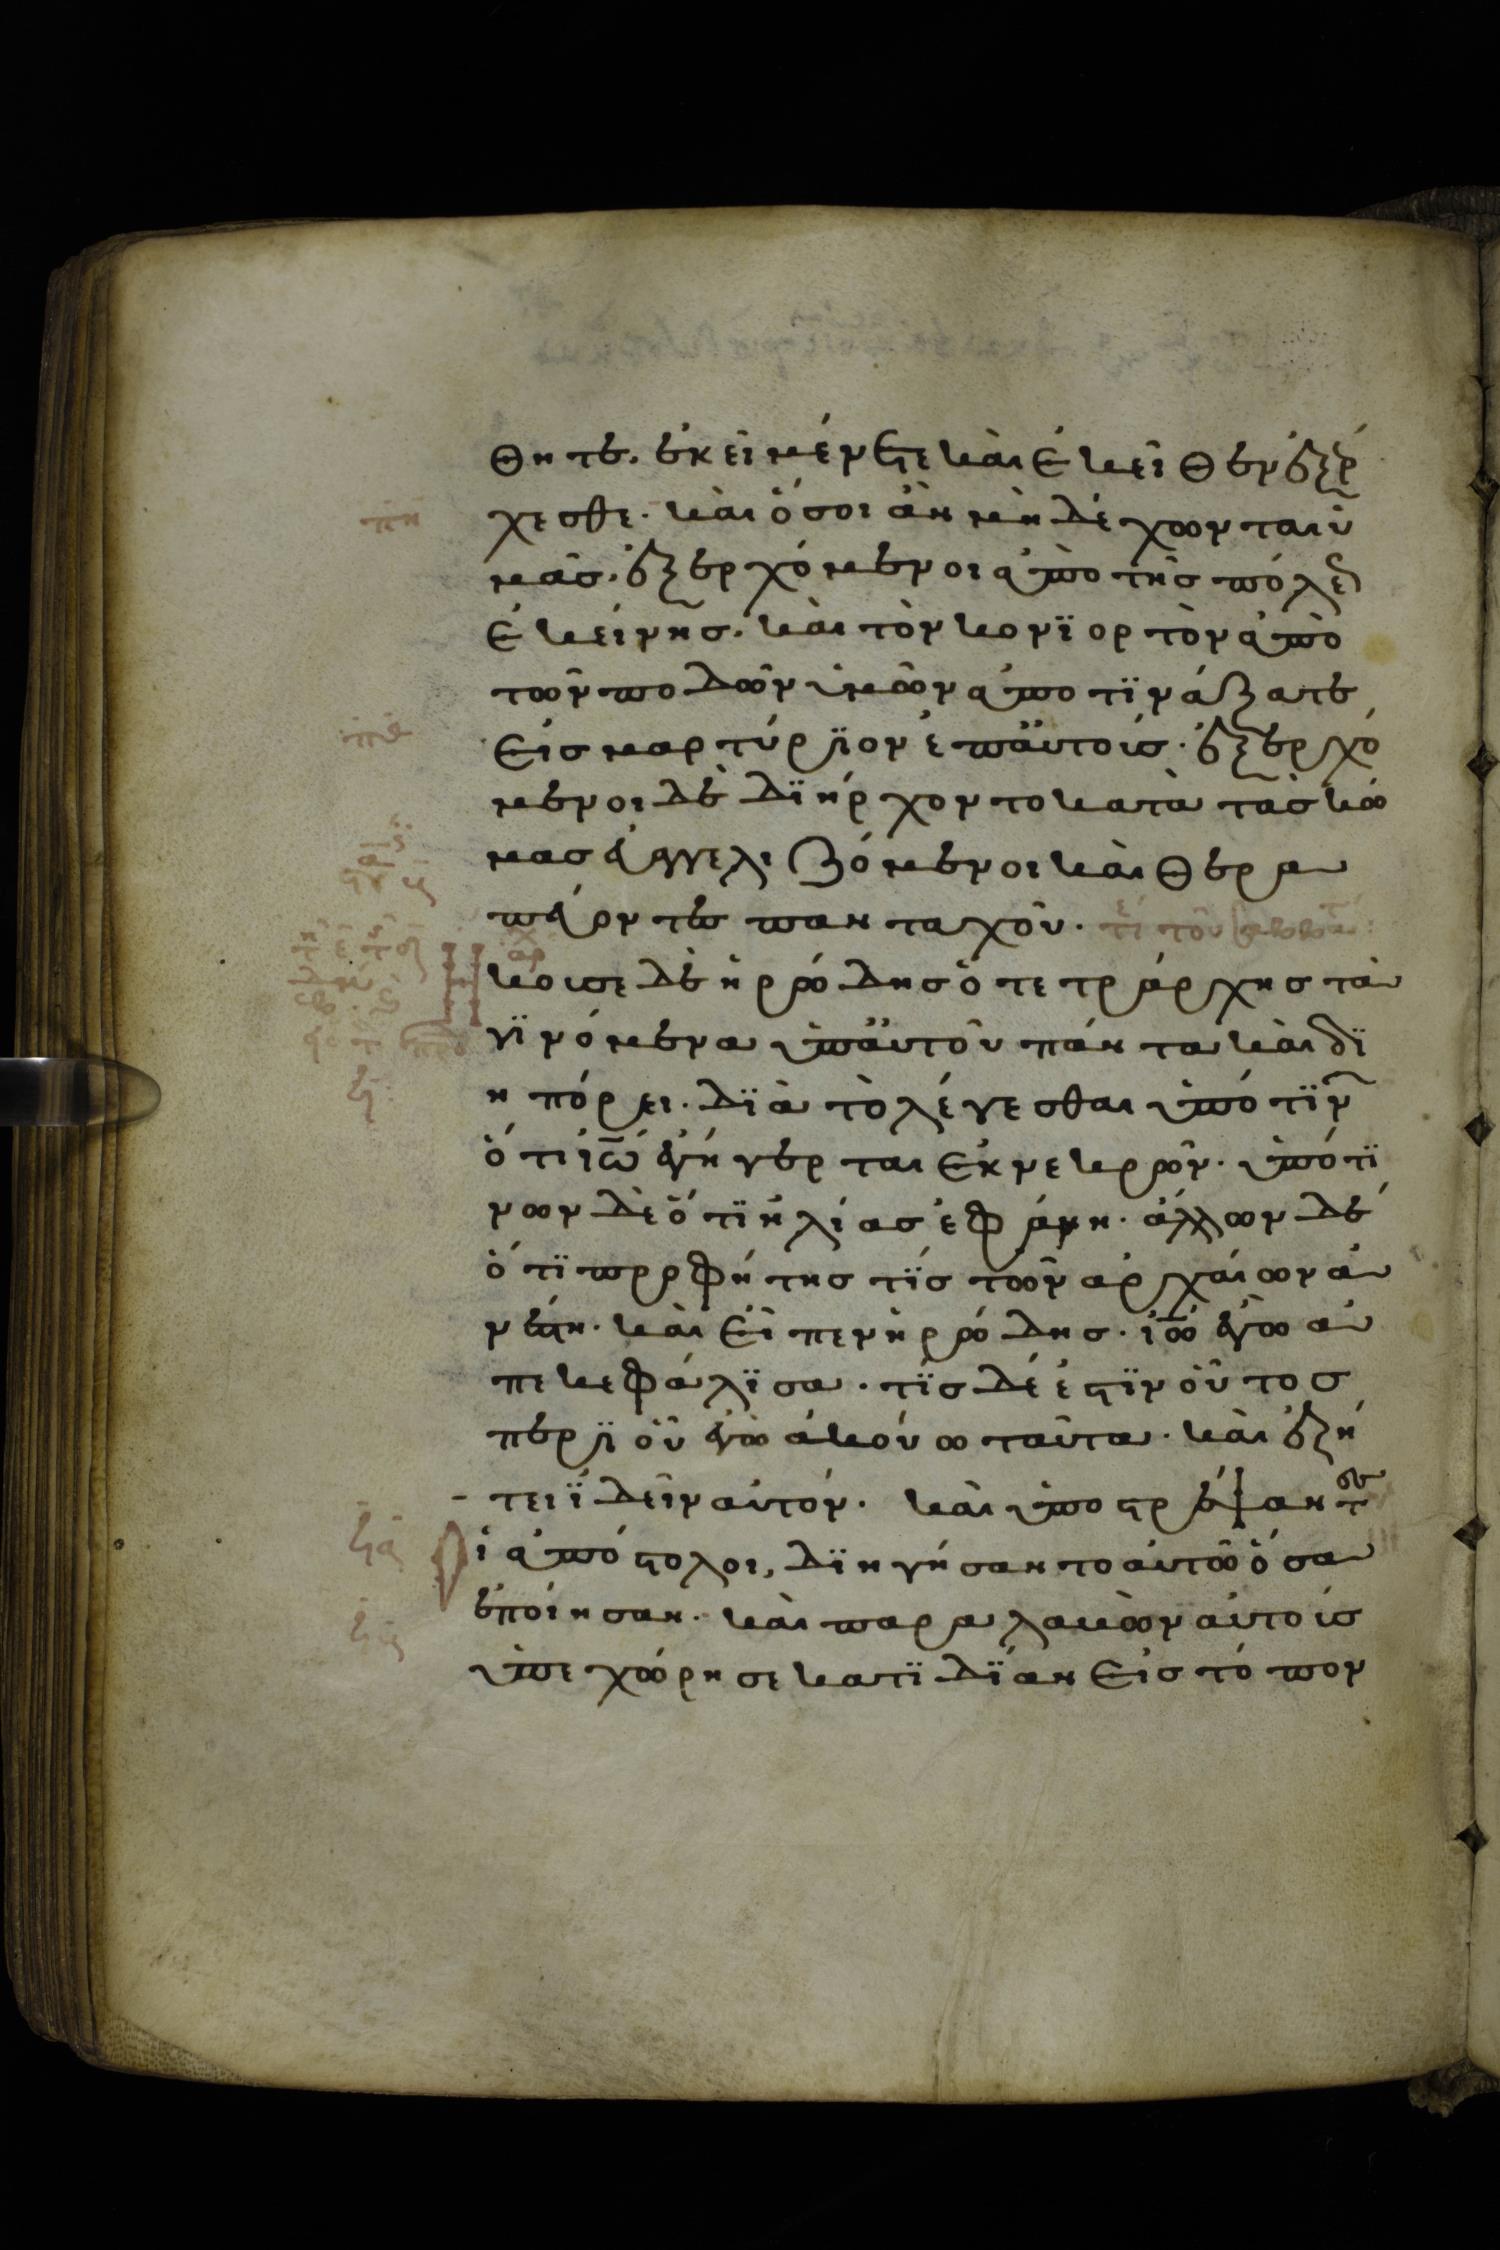 θητε. ἐκεῖ μένετε καὶ ἐκεῖθεν ἐξέρ
χεσθε. καὶ ὅσοι ἂν μὴ δέχωνται ὑ
μᾶς. ἐξερχόμενοι ἀπὸ τῆς πόλε
ἐκείνης. καὶ τὸν κονϊορτὸν ἀπὸ
τῶν ποδῶν ὑμῶν ἀποτϊνάξατε
εἰς μαρτύρϊον ἐπ αὐτοὺς. ἐξερχό
μενοι δὲ δϊήρχοντο κατὰ τὰς κώ
μας εὐαγγελιζόμενοι καὶ θερα
πεύοντες πανταχοῦ.
κουσε δὲ ἡρώδης ὁ τετράρχης τὰ
γϊνόμενα ὑπ αὐτοῦ πάντα καὶ δϊ
ηπόρει. δϊὰ τὸ λέγεσθαι ὑπό τϊν
ὅτι ἰω ἐγήγερται ἐκ νεκρῶν. ὑπό τϊ
νων δὲ ὅτϊ ἡλίας ἐφάνη. ἄλλων δέ
ὅτϊ προφήτης τϊς τῶν ἀρχαίων ἀ
νέστη. καὶ εἶπεν ἡρώδης. ἰω ἐγὼ ἀ
πεκεφάλϊσα. τϊς δέ ἐστϊν οὗτος
περϊ οὗ ἐγὼ ἀκούω ταῦτα. καὶ ἐζή
τει ϊδεῖν αὐτόν. καὶ ὑποστρέψαντ
ι ἀπόστολοι, δϊηγήσαντο αὐτῶ ὅσα
ἐποίησαν. καὶ παραλαβὼν αὐτοὺς
ὑπεχώρησε κατϊδΐαν εἰς τόπον